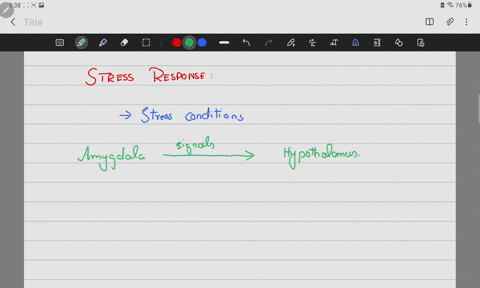 3:38
76%
Title
STRESS RESPONSE :
→ Stress conditions
signals
Amygdala → Hypothalamus.